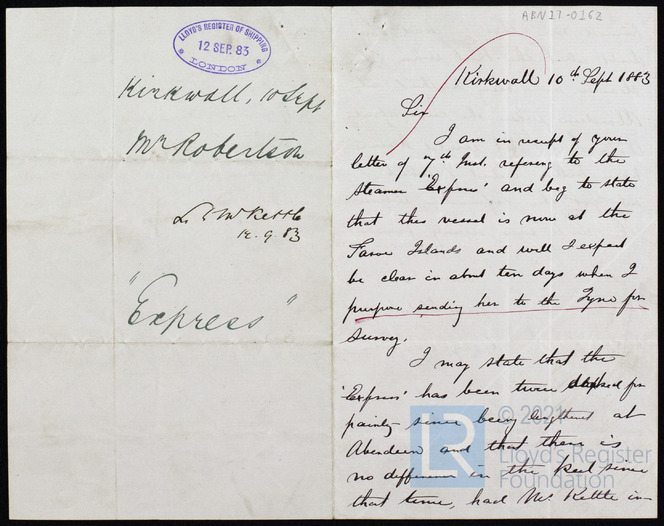 LLOYD'S REGISTER OF SHIPPING
12 SEP. 83
LONDON
Kirkwall, 10 Sept
Mr Robertson
McKettle
12.9.83
"Express"
ABN17-0162
Kirkwall 10th Sept 1883
Sir
I am in receipt of your
letter of 7th Inst. refering to the
Steamer 'Express' and beg to state
that this vessel is now at the
Faroe Islands and will I expect
be clear in about ten days when I
purpose sending her to the Tyne for
Survey.
I may state that the
'Express' has been twice for
painting since being lengthened at
Aberdeen and that there is
no difference in the keel since
that time, had Mr Kettle in-
© 2021
LR
Lloyd's Register
Foundation